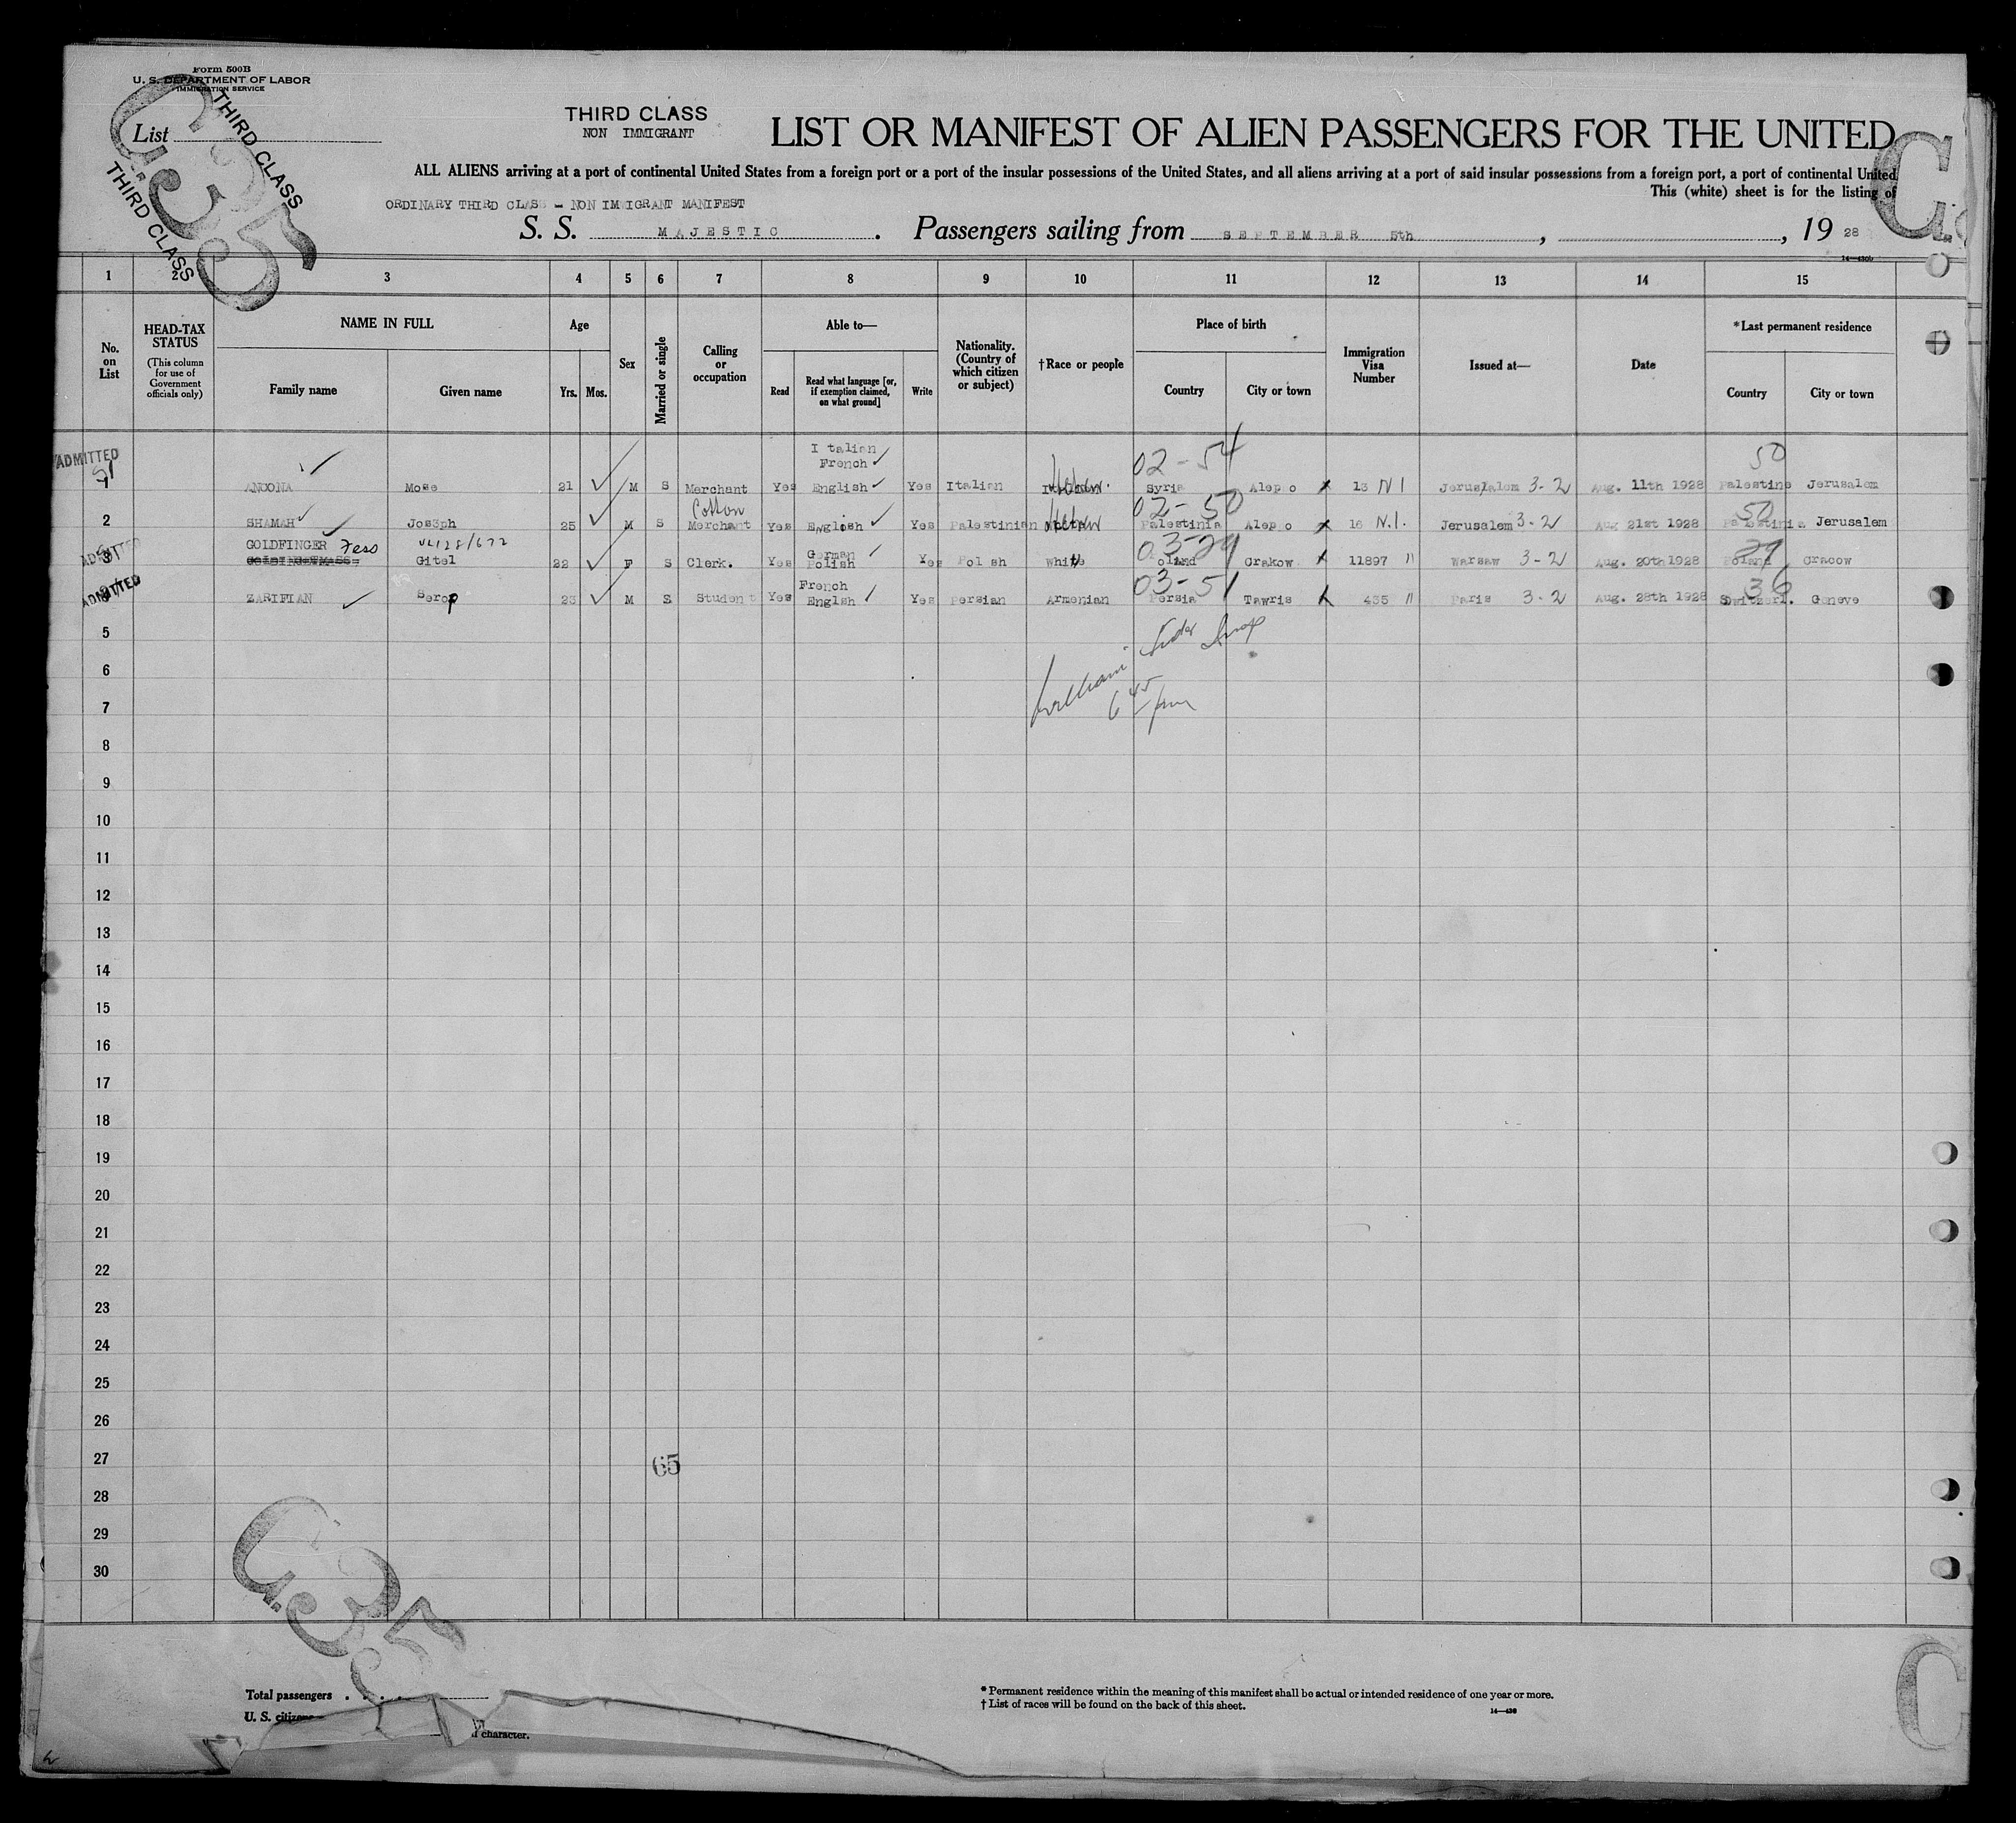 Form 500B
U. S. DEPARTMENT OF LABOR
IMMIGRATION SERVICE
List
THIRD CLASS
THIRD CLASS
C35
THIRD CLASS
NON IMMIGRANT
LIST OR MANIFEST OF ALIEN PASSENGERS FOR THE UNITED
ALL ALIENS arriving at a port of continental United States from a foreign port or a port of the insular possessions of the United States, and all aliens arriving at a port of said insular possessions from a foreign port, a port of continental United
This (white) sheet is for the listing of
ORDINARY THIRD CLASS - NON IMMIGRANT MANIFEST
S. S. MAJESTIC. Passengers sailing from SEPTEMBER 5th, , 19 28
14—430b
1 2 3 4 5 6 7 8 9 10 11 12 13 14 15
No. on List
HEAD-TAX STATUS
(This column for use of Government officials only)
NAME IN FULL
Family name
Given name
Age
Yrs. Mos.
Sex
Married or single
Calling or occupation
Able to—
Read
Read what language [or, if exemption claimed, on what ground]
Write
Nationality. (Country of which citizen or subject)
†Race or people
Place of birth
Country
City or town
Immigration Visa Number
Issued at—
Date
*Last permanent residence
Country
City or town
ADMITTED
I talian
French
02-54
50
1 ANCONA Mose 21 M S Merchant Yes English Yes Italian Hebrew Syria Alep o 13 N I Jerusalem 3-2 Aug. 11th 1928 Palestine Jerusalem
Cotton
02-50
50
2 SHAMAH Jos3ph 25 M S Merchant Yes English Yes Palestinian Hebrew Palestinia Alep o 16 N.I. Jerusalem 3-2 Aug 21st 1928 Palestinia Jerusalem
ADMITTED
GOLDFINGER Fess VL128/672
German
03-29
29
3 Gitel 22 F S Clerk. Yes Polish Yes Pol sh White oland Crakow 11897 " Warsaw 3-2 Aug. 20th 1928 Poland Cracow
ADMITTED
French
03-51
36
4 ZARIFIAN Serop 23 M S Studen t Yes Englsh Yes Persian Armenian Persia Tawris 435 " Paris 3-2 Aug. 28th 1928 Switzerl. Geneve
5
6
6 45 pm
7
8
9
10
11
12
13
14
15
16
17
18
19
20
21
22
23
24
25
26
27
65
28
29
30
C35
Total passengers . . . .
U. S. citizens
character.
* Permanent residence within the meaning of this manifest shall be actual or intended residence of one year or more.
† List of races will be found on the back of this sheet.
14—430